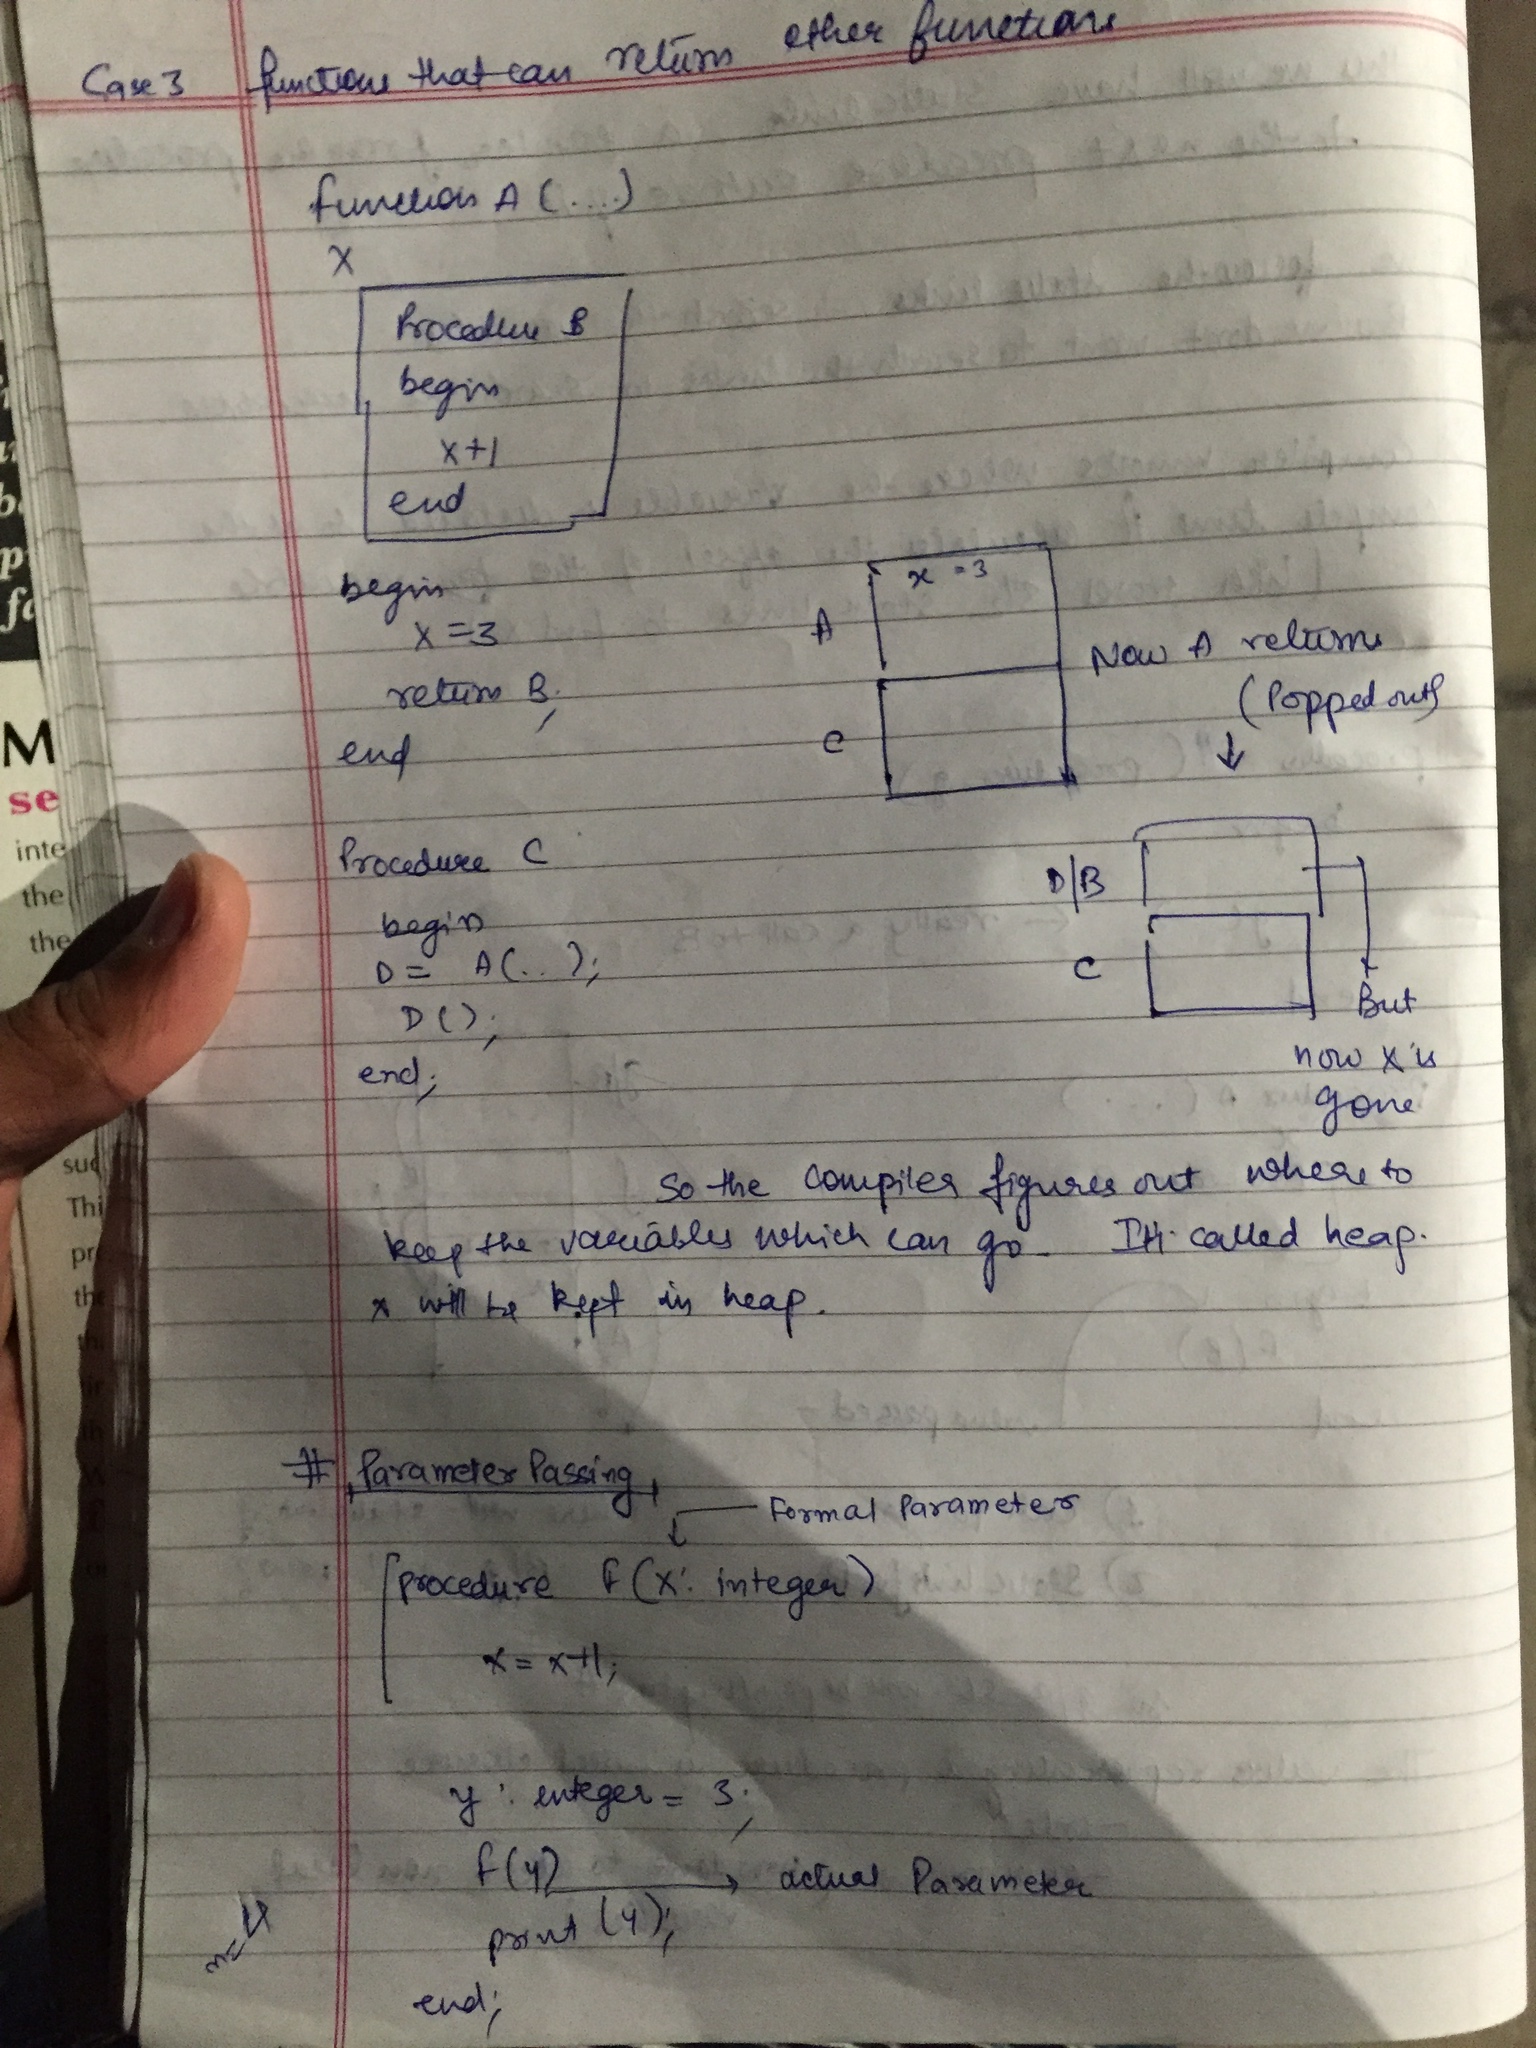 Case 3 functions that can return other functions
function A (....)
X
Procedure B
begin
x+1
end
begin
x = 3
return B;
end
x = 3
A
C
Now A returns
(Popped out)
D/B
C
But
now x is
gone
Procedure C
begin
D = A(..);
D();
end;
So the compiler figures out where to
keep the variables which can go. It's called heap.
x will be kept in heap.
# Parameter Passing
Formal Parameter
procedure f(x: integer)
x = x+1;
y : integer = 3;
f(y) actual Parameter
print (y);
end;
M
se
inte
the
the
suc
Thi
pr
the